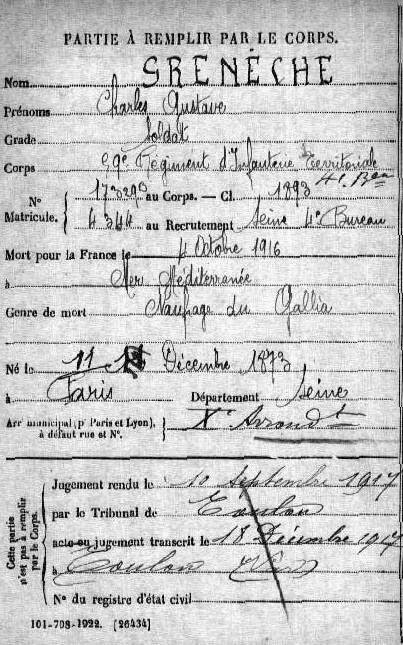 PARTIE À REMPLIR PAR LE CORPS.
Nom SRENÈCHE
Prénoms Charles Gustave
Grade Soldat
Corps 59e Régiment d'Infanterie Territoriale
N° 173290 au Corps. — Cl. 1893
Matricule. 4344 au Recrutement Seine 4e Bureau
Mort pour la France le 4 Octobre 1916
à Mer Méditerranée
Genre de mort Naufrage du Gallia
Né le 11 Décembre 1873
à Paris Département Seine
Arr municipal (pr Paris et Lyon), à défaut rue et N°. Xe Arrondt
Cette partie n'est pas à remplir par le Corps.
Jugement rendu le 10 Septembre 1917
par le Tribunal de Toulon
acte ou jugement transcrit le 18 Décembre 1917
à Toulon Var
N° du registre d'état civil
101-708-1922. [26434]